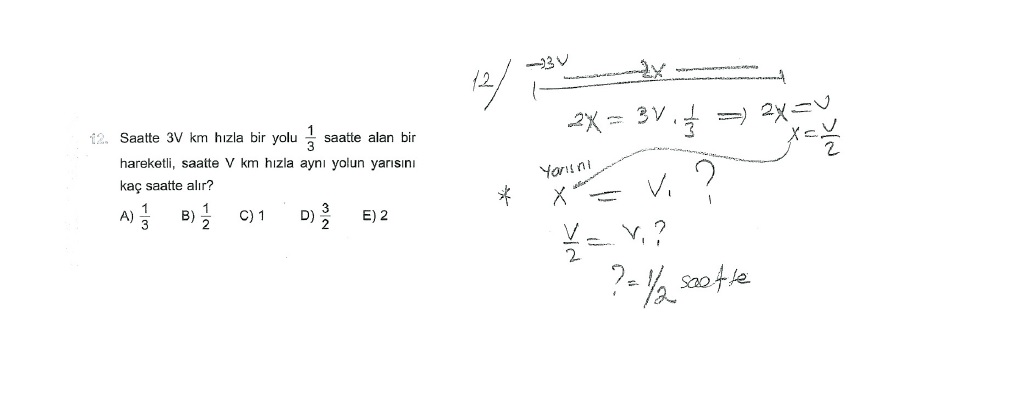 12. Saatte 3V km hızla bir yolu 1/3 saatte alan bir
hareketli, saatte V km hızla aynı yolun yarısını
kaç saatte alır?
A) 1/3 B) 1/2 C) 1 D) 3/2 E) 2
12/ →3V 2X
2X = 3V . 1/3 ⇒ 2X = V
X = V/2
Yarısını
* X = V. ?
V/2 = V. ?
? = 1/2 saatte